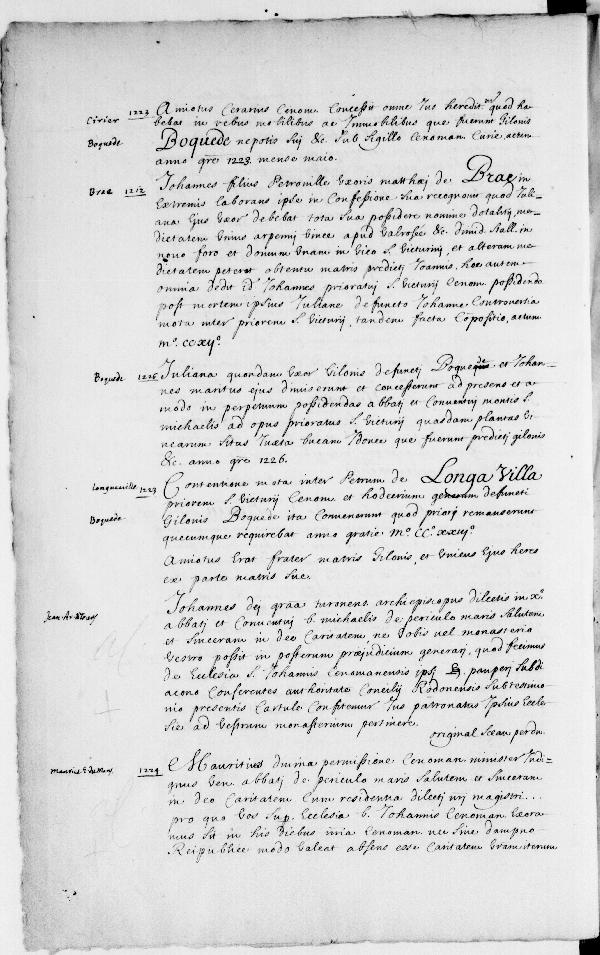 Cirier 1223 Amiotus Cerarius Cenom. Concessit omne Jus heredit. quod ha-
bebat in rebus mobilibus ac Immobilibus que fuerunt Gilonis
Boquede Boquede nepotis Suj &c. Sub Sigillo Cenoman. Curie, actum
anno gre 1223. mense maio.
Brae 1212 Johannes filius Petronille Uxoris matthæj de Brae in
Extremis laborans ipse in Confessione Sua recognouit quod Juli-
ana Ejus Uxor debebat tota Sua possidere nomine dotalitij, me-
dietatem Unius arpennj vinee apud Valrosee &c. dimid. Stall. in
novo foro et domum Unam in Vico S. Victurij, et alteram me-
dietatem peteret obtentu matris predictj Joannis, hoc autem
omnia dedit id. Johannes prioratuj S. Victurij Cenom. possidenda
post mortem ipsius Juliane defuncto Johanne Controversia
mota inter priorem S. Victurij, tandem facta Copositio, actum
mo. ccxijo.
Boquede 1226 Juliana quondam Uxor Gilonis defunctj Boquede et Johan-
nes maritus ejus dimiserunt et concesserunt ad presens et a
modo in perpetuum possidendas abbatj et Conventuj montis S.
michaelis ad opus prioratus S. Victurij quasdam plantas Vi-
nearum Sitas Juxta bucam Ydonee que fuerunt predictj gilonis
&c. anno gre 1226.
Longueville 1223 Contentione mota inter Petrum de Longa Villa
priorem S. Victurij Cenom. et hodeerium generum defuncti
Boquede Gilonis Boquede ita Convenerunt quod priorj remanserunt
quecumque requirebat anno gratie Mo. CCo. xxiijo.
Amiotus Erat frater matris Gilonis, et Unicus Ejus heres
ex parte matris Sue.
Johannes dej graa turonens. archiepiscopus dilectis in Xo.
abbatj et Conventuj b. michaelis de periculo maris Salutem
et Sinceram in deo Caritatem ne Vobis uel monasterio
Vestro possit in posterum præjudicium generarj, quod fecimus
de Ecclesia S. Johannis Cenomanensis ipsj pauperj Subdi
acono Conferentes authoritate Concilij Rodonensis Subtestimo-
nio presentis Cartule Confitemur Jus patronatus Ipsius Eccle-
sie ad Vestrum monasterium pertinere.
original Sceau perdu.
1224 Mauritius divina permissione Cenoman. minister Indi-
gnus Ven. abbatj de periculo maris Salutem et Sinceram
in deo Caritatem Cum residentia dilectj nrj magistri ...
pro quo Vos Sup. Ecclesia b. Johannis Cenoman. Exora-
mus Sit in his diebus Cenoman. nec Sine dampno
Reipublice modo Valeat absens esse Caritatem Vram iterum